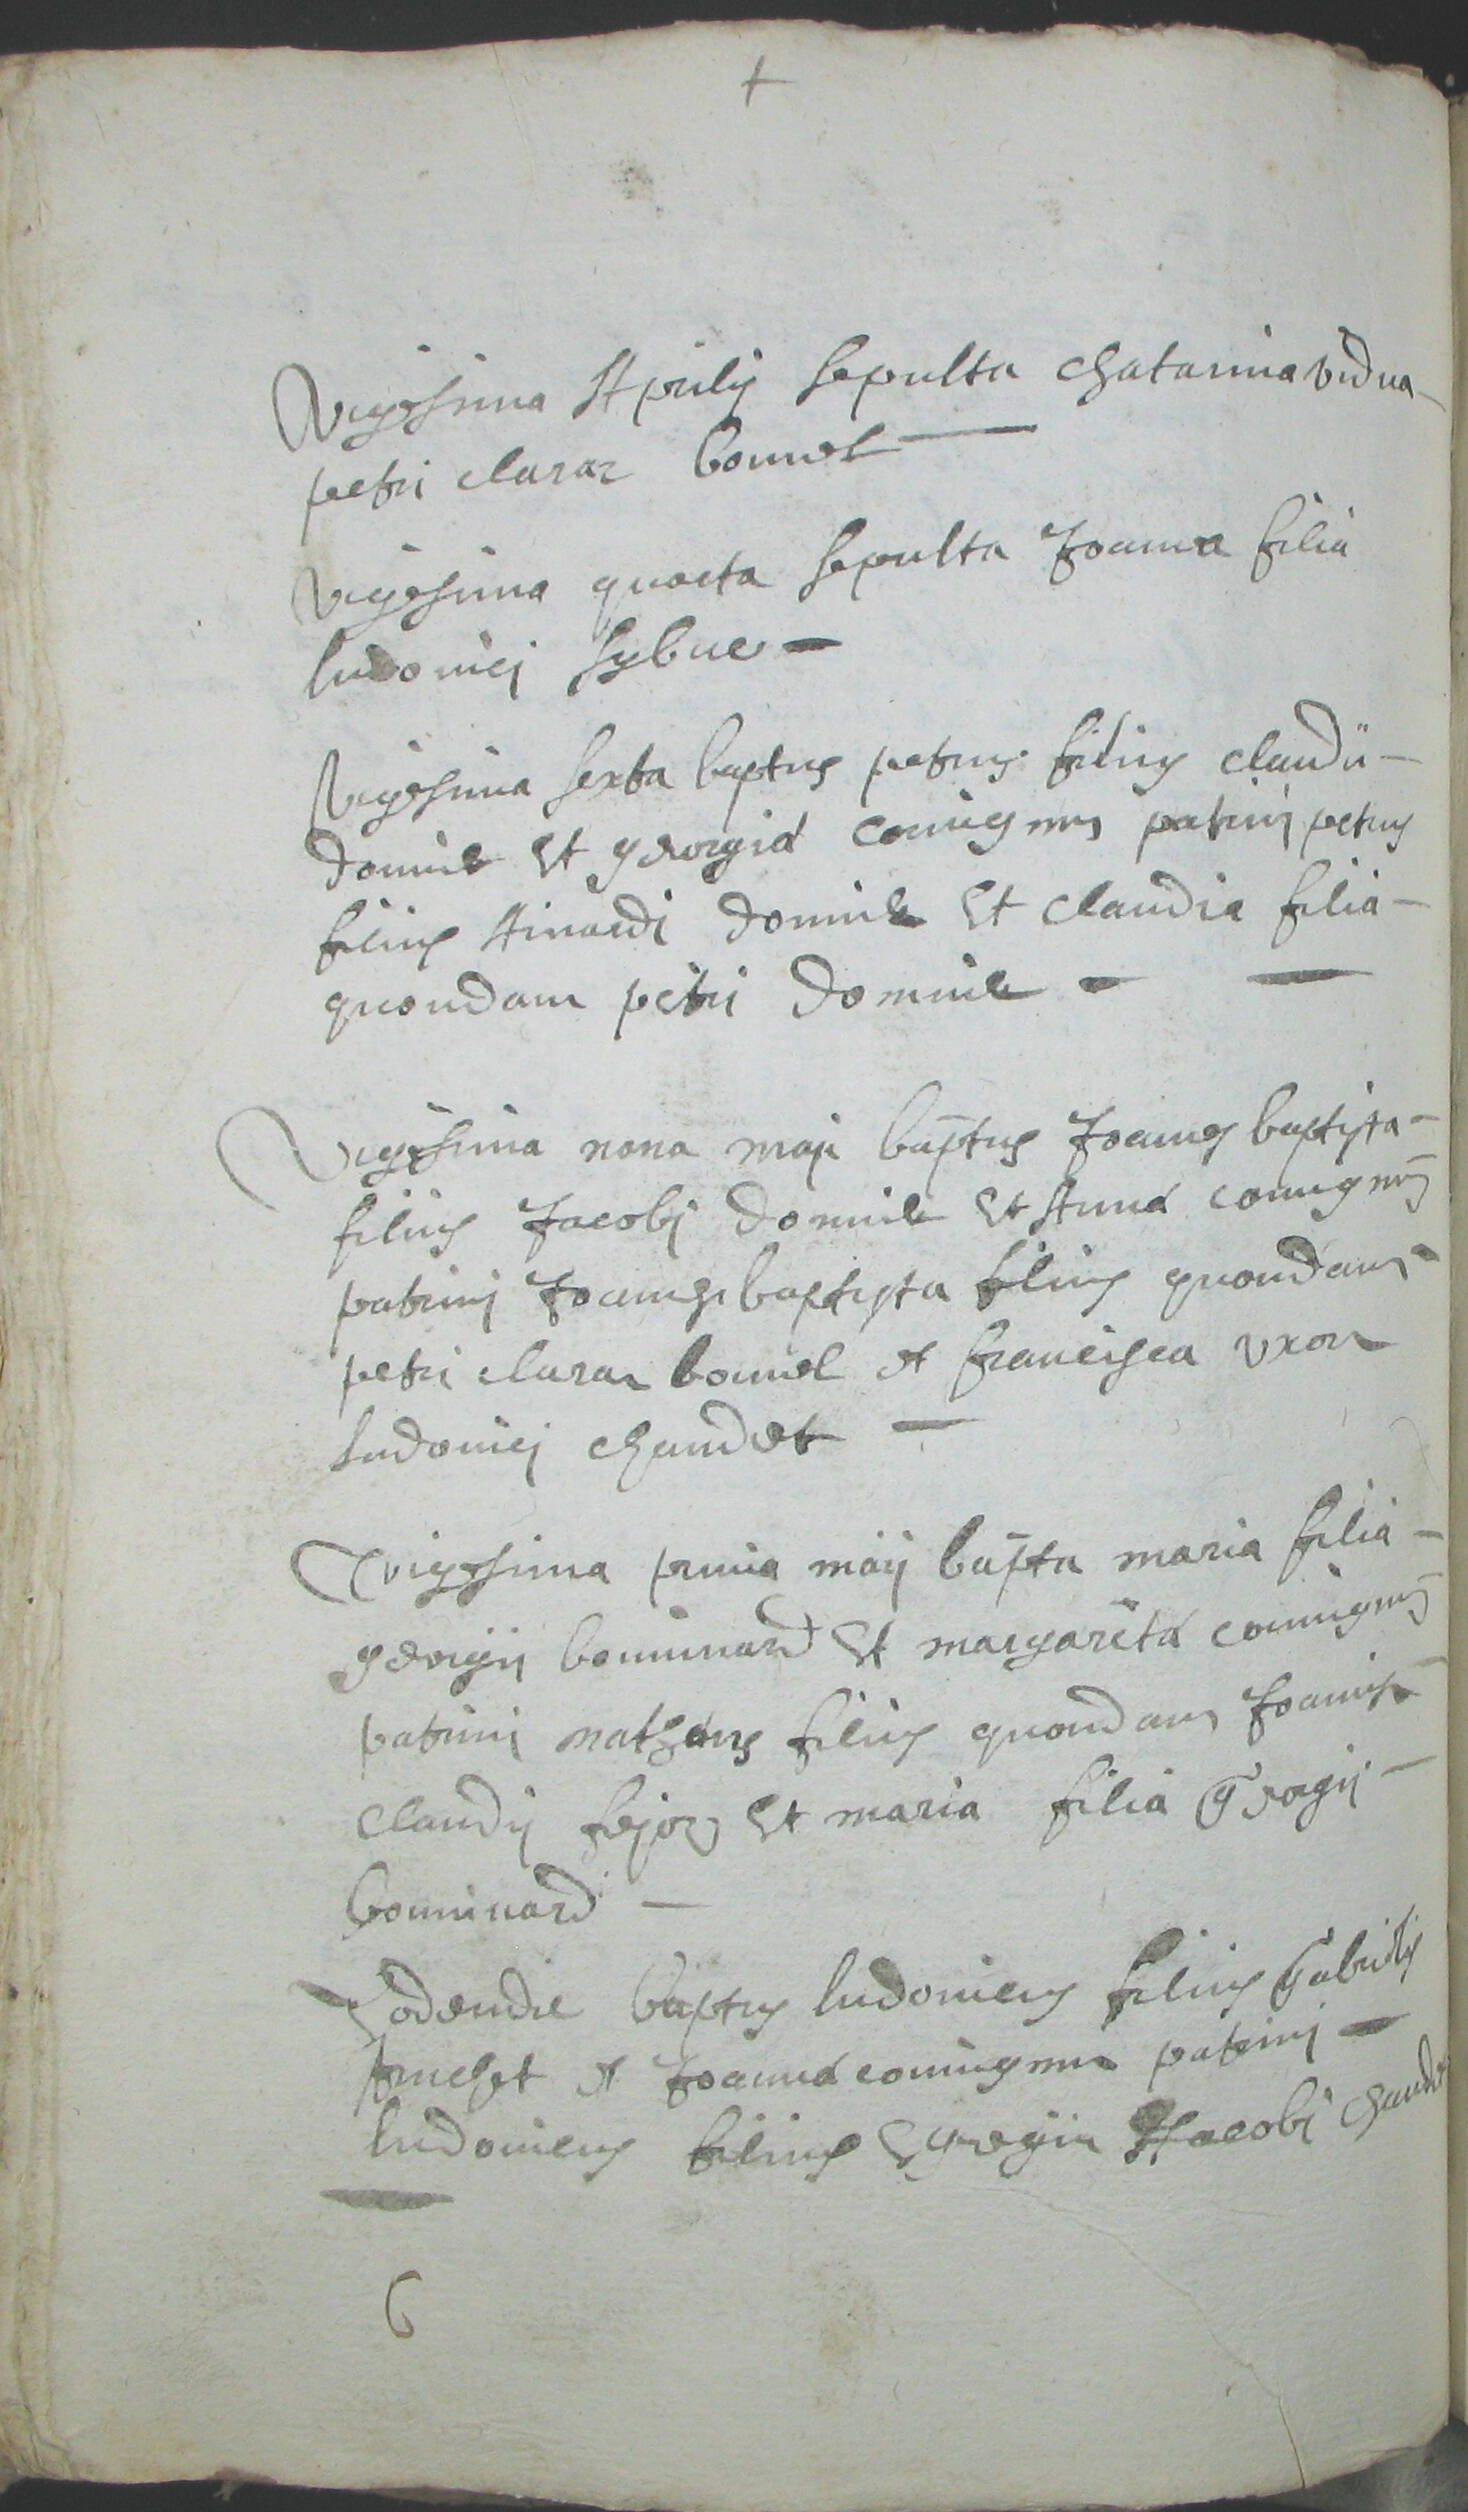 +
Vigesima Aprilis sepulta Chatarina vidua
petri claraz bonnel
Vigesima quarta sepulta Joanna filia
ludovicj sylve
Vigesima sexta baptus petrus filius claudii
domine et georgia coniugum patrinj petrus
filius Ainardj domine et claudia filia
quondam petri domine
Vigesima nona maji baptus Joannes baptista
filius Jacobj domine et Anna coniugum
patrinj Joannes baptista filius quondam
petri claraz bonnel et francisca uxor
ludovicj chaudet
Trigesima prima maij bapta maria filia
georgij bouuinard et margareta coniugum
patrinj matheus filius quondam Joannis
claudij et maria filia Georgij
bouuinard
Eodemdie baptus ludovicus filius Gabrielis
truchet et Joanna coniugum patrinj
ludovicus filius Egregii Jacobj chaudet
6